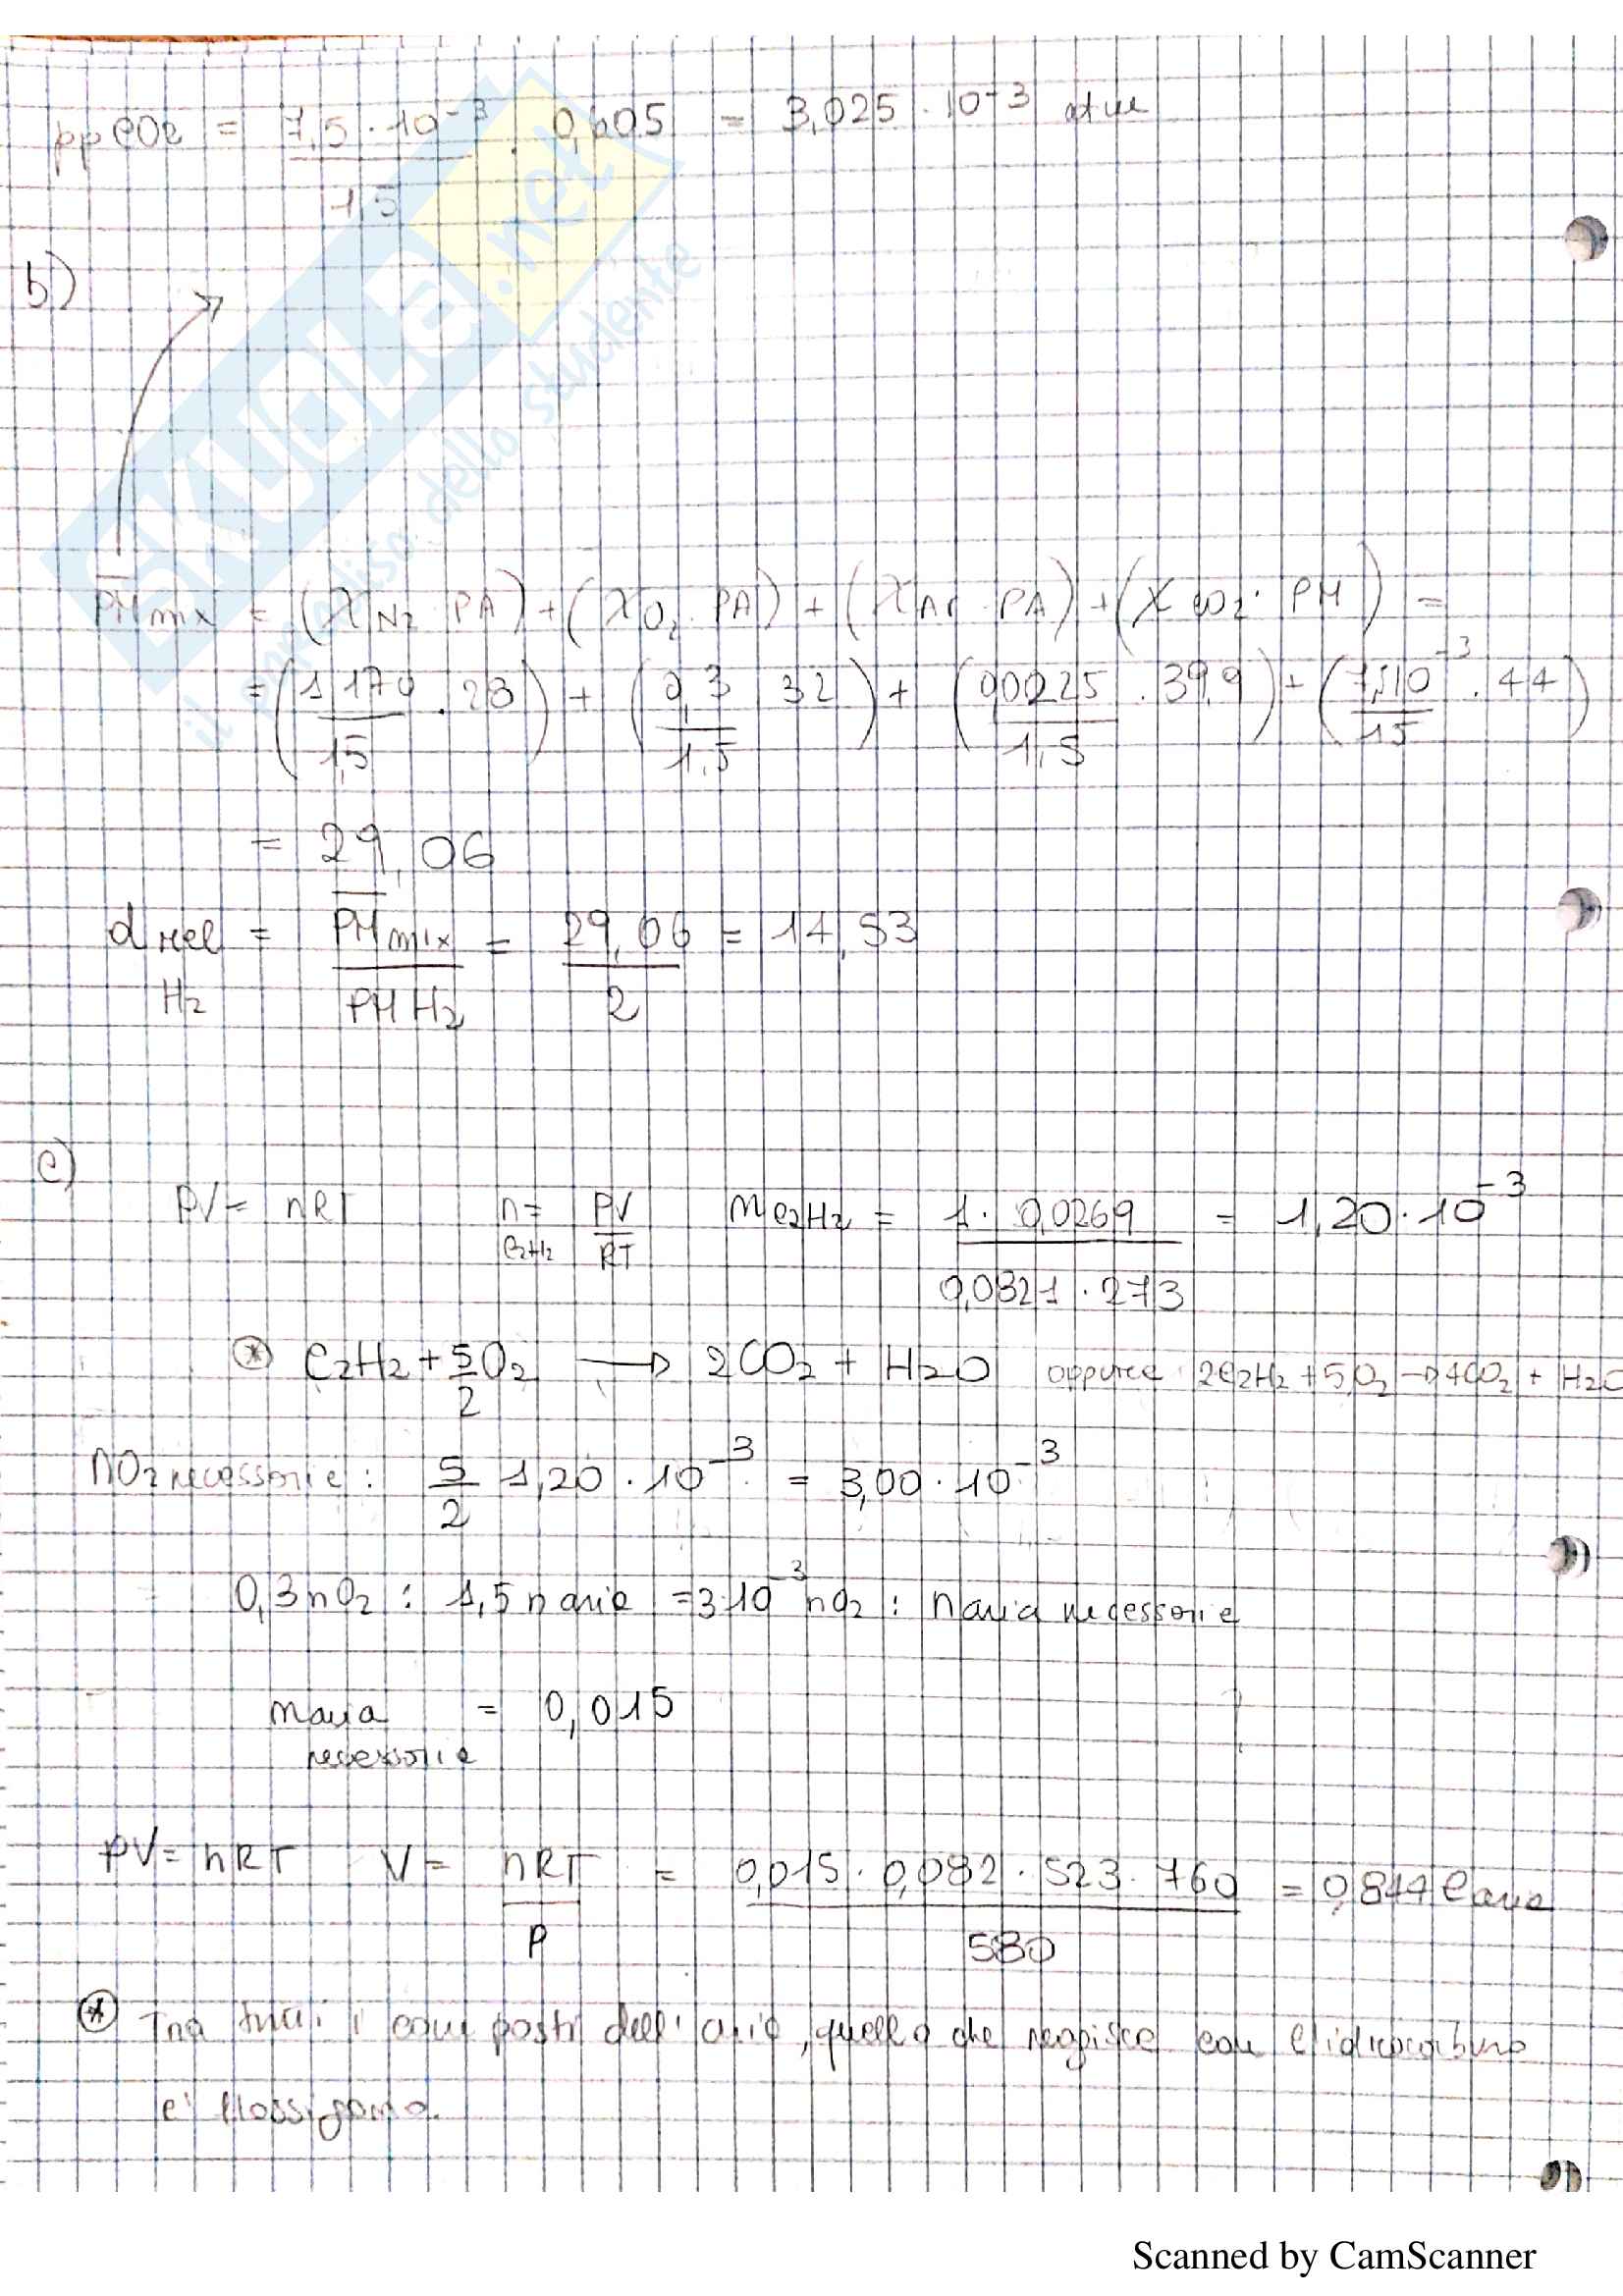 ppCO2 = 7,5·10⁻³/1,5 · 0,605 = 3,025·10⁻³ atm
b)
SKUOLA.net
il paradiso dello studente
PMmix = (XN2 · PA) + (XO2 · PA) + (XAr · PA) + (XCO2 · PM) =
= (1,170/1,5 · 28) + (0,3/1,5 32) + (0,0225/1,5 · 39,9) + (7,510⁻³/1,5 · 44)
= 29,06
drel H2 = PMmix/PMH2 = 29,06/2 = 14,53
c)
PV = nRT n C2H2 = PV/RT nC2H2 = 1· 0,0269/0,0821·273 = 1,20·10⁻³
* C2H2 + 5/2 O2 → 2CO2 + H2O oppure 2C2H2 + 5O2 → 4CO2 + H2O
nO2 necessarie: 5/2 1,20·10⁻³ = 3,00·10⁻³
0,3 nO2 : 1,5 n aria = 3·10⁻³ nO2 : n aria necessarie
n aria necessarie = 0,015
PV = nRT V = nRT/P = 0,015·0,082·523·760/580 = 0,844 l aria
* Tra tutti i composti dell'aria, quello che reagisce con l'idrocarburo
e' l'ossigeno.
Scanned by CamScanner